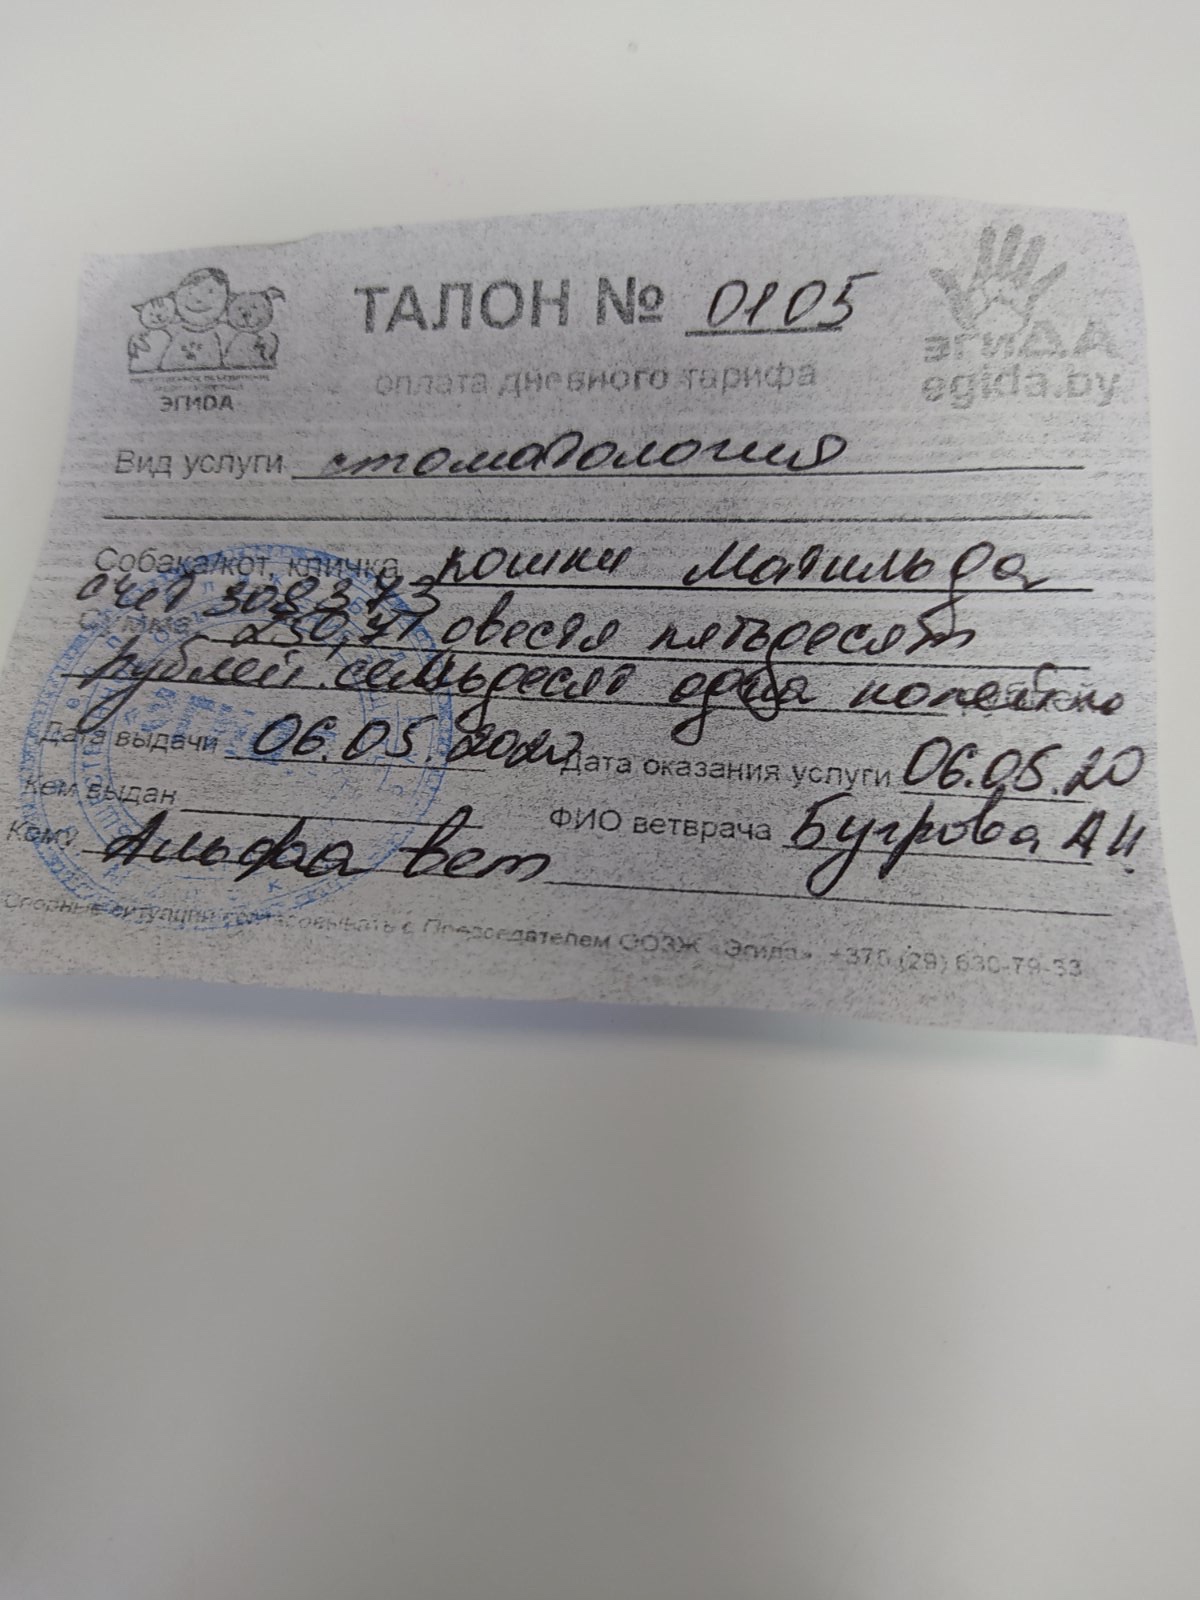 ТАЛОН № 0105
оплата дневного тарифа
ЭГИДА
эгиДА
egida.by
Вид услуги стоматология
Собака/кот, кличка кошки Матильда
счет 308373
Сумма 250,71 двести пятьдесят
рублей семьдесят одна копейка
Дата выдачи 06.05.2020 Дата оказания услуги 06.05.20
Кем выдан ФИО ветврача Бугрова А Н.
Кому Альфа вет
Спорные ситуации согласовывать с Председателем ООЗЖ «Эгида» +375 (29) 630-79-33